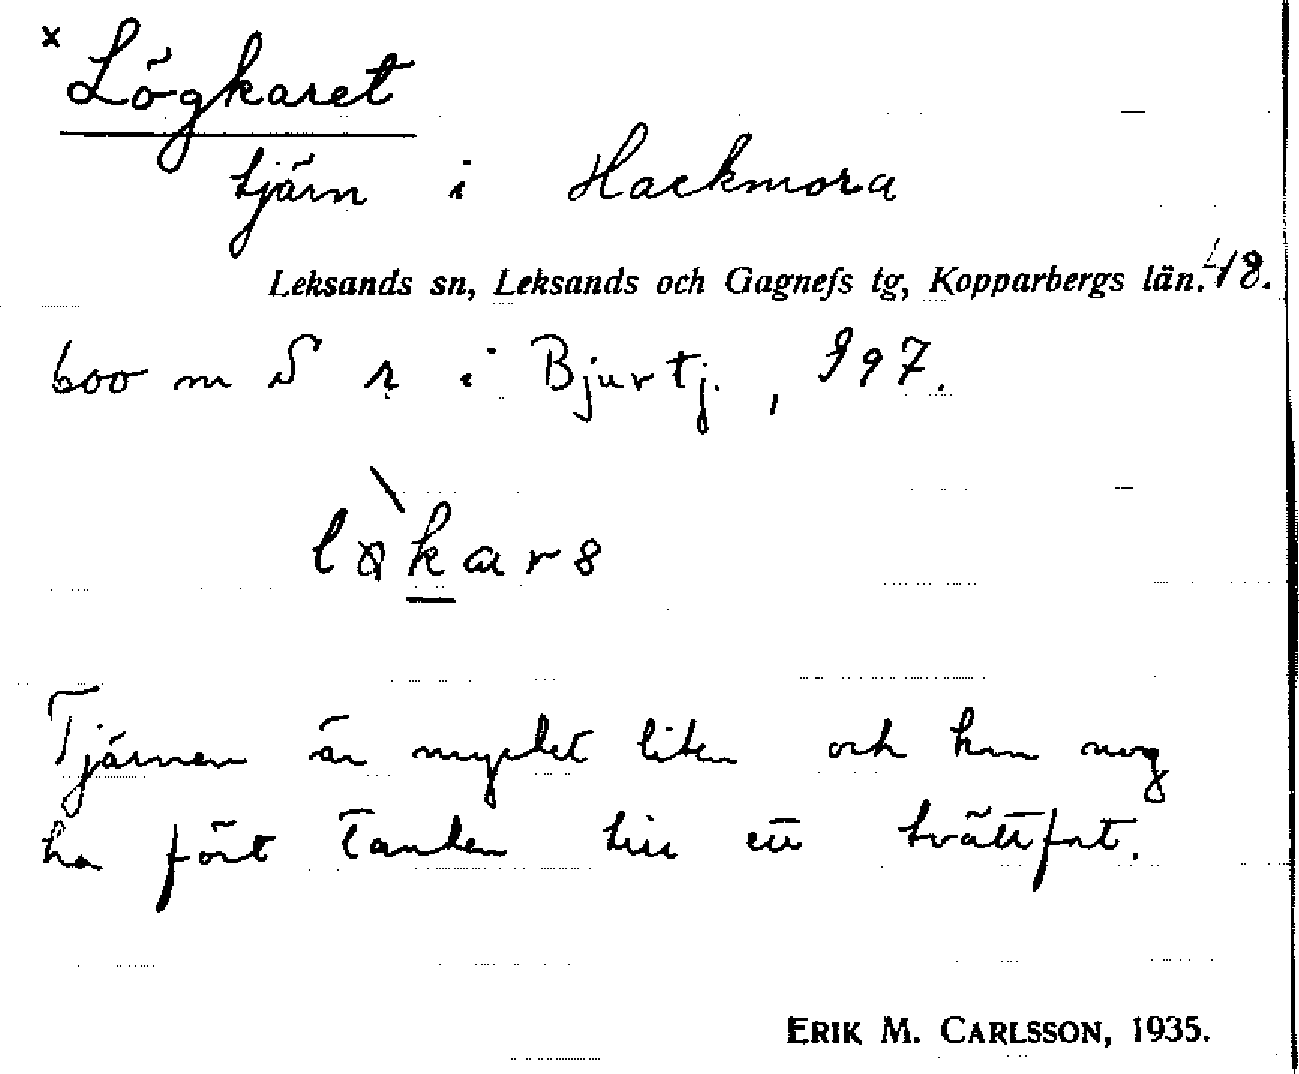 x Lögkaret
tjärn i Hackmora
Leksands sn, Leksands och Gagnefs tg, Kopparbergs län. 48.
600 m S r i Bjurtj., 997.
Tjärnen är mycket liten och kan nog
ha fört tanken till ett tvättfat.
ERIK M. CARLSSON, 1935.